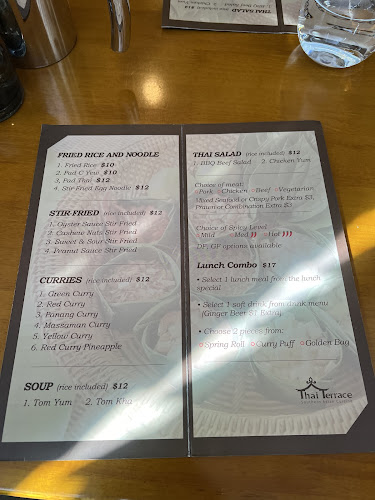 THAI SALAD
FRIED RICE AND NOODLE
1. Fried Rice $10
2. Pad C Yew $10
3. Pad Thai $12
4. Stir Fried Egg Noodle $12
STIR-FRIED (rice included) $12
1. Oyster Sauce Stir Fried
2. Cashew Nuts Stir Fried
3. Sweet & Sour Stir Fried
4. Peanut Sauce Stir Fried
CURRIES (rice included) $12
1. Green Curry
2. Red Curry
3. Panang Curry
4. Massaman Curry
5. Yellow Curry
6. Red Curry Pineapple
SOUP (rice included) $12
1. Tom Yum 2. Tom Kha
THAI SALAD (rice included) $12
1. BBQ Beef Salad 2. Chicken Yum
Choice of meat:
Pork Chicken Beef Vegetarian
Mixed Seafood or Crispy Pork Extra $3,
Prawn or Combination Extra $3
Choice of Spicy Level
Mild Med Hot
DF, GF options available
LUNCH COMBO $17
• Select 1 lunch meal from the lunch
special
• Select 1 soft drink from drink menu
(Ginger Beer $1 Extra)
• Choose 2 pieces from:
Spring Roll Curry Puff Golden Bag
Thai Terrace